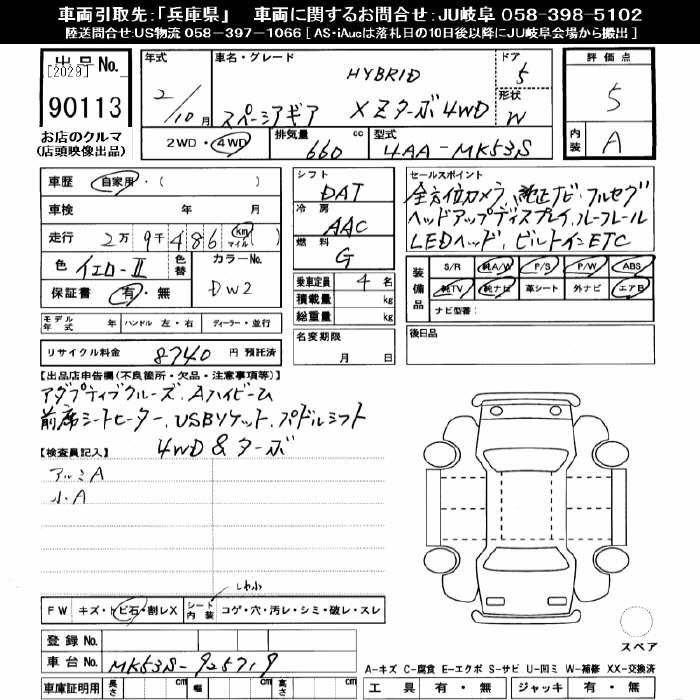 車両引取先:「兵庫県」 車両に関するお問合せ:JU岐阜 058-398-5102
陸送問合せ:US物流 058-397-1066 [ AS・iAucは落札日の10日後以降にJU岐阜会場から搬出 ]
出品No.
[2029]
90113
お店のクルマ
(店頭映像出品)
年式
2/10月
車名・グレード
HYBRID
スペーシアギア XZターボ4WD
ドア
5
形状
W
2WD・4WD
排気量 660 cc
型式 4AA-MK53S
評価点
5
内装 A
車歴 自家用・( )
車検 年 月
走行 2万9千486 km マイル ( )
色 イエローII 色替
カラーNo. DW2
保証書 有・無
シフト
DAT
冷房
AAC
燃料
G
乗車定員 4名
積載量 kg
総重量 kg
名変期限
月 日
セールスポイント
全方位カメラ、純正ナビ・フルセグ
ヘッドアップディスプレイ、ルーフレール
LEDヘッド、ビルトインETC
装備品
S/R 純A/W P/S P/W ABS
純TV 純ナビ 革シート 外ナビ エアB
ナビ型番:
後日品
モデル年式 年 ハンドル 左・右 ディーラー・並行
リサイクル料金 8740 円 預託済
【出品店申告欄(不良箇所・欠品・注意事項等)】
アダプティブクルーズ、Aハイビーム
前席シートヒーター、USBソケット、パドルシフト
4WD & ターボ
【検査員記入】
アルミA
小A
しわ小
FW キズ・トビ石・割レX シート内装 コゲ・穴・汚レ・シミ・破レ・スレ
登録No.
車台No. MK53S-925719
車庫証明用 長さ cm 幅 cm 高さ cm
スペア
A-キズ C-腐食 E-エクボ S-サビ U-凹ミ W-補修 XX-交換済
工具 有・無 ジャッキ 有・無